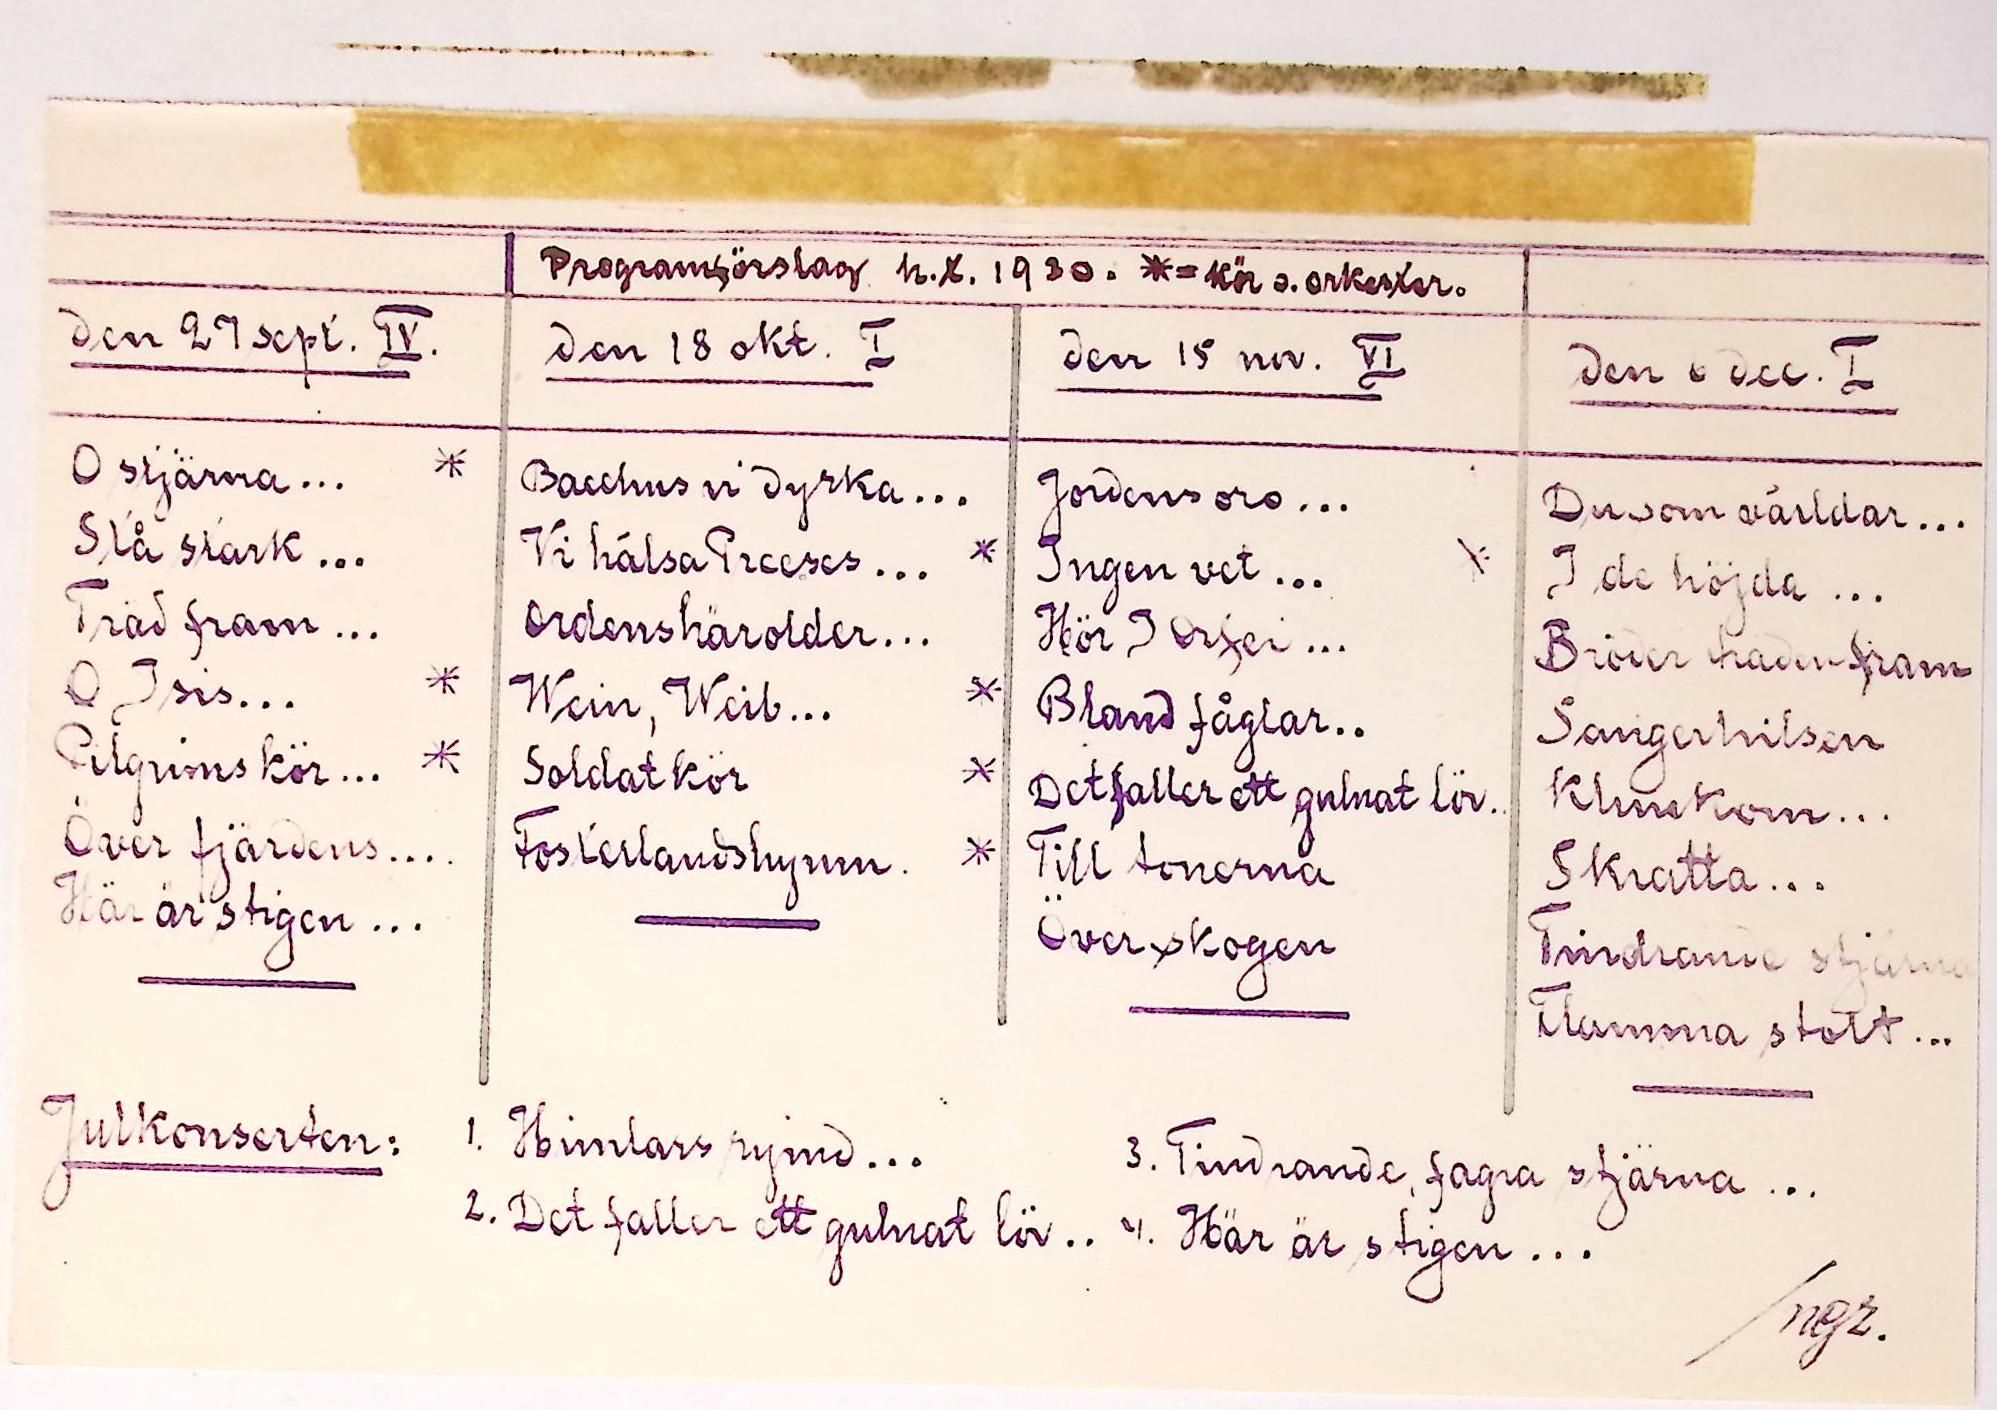 Programförslag h.t. 1930. * = kör o. orkester.
den 27 sept. IV.
O stjärna... *
Stå stark...
Träd fram...
O Isis... *
Pilgrimskör... *
Över fjärdens....
Här är stigen...
den 18 okt. I
Bacchus vi dyrka...
Vi hälsa Preeses... *
Ordenshärolder...
Wein, Weib... *
Soldatkör *
Fosterlandshymn. *
den 15 nov. VI
Jordens oro...
Ingen vet... *
Hör I Orfei...
Bland fåglar..
Det faller ett gulnat löv..
Till tonerna
Över skogen
den 6 dec. I
Du som världar...
I de höjda...
Bröder träden fram
Sångerhilsen
Klinckom...
Skratta...
Tindrande stjärna
Flamma stolt...
Julkonserten:
1. Himlars rymd...
2. Det faller ett gulnat löv..
3. Tindrande, fagra stjärna...
4. Här är stigen...
/ngr.